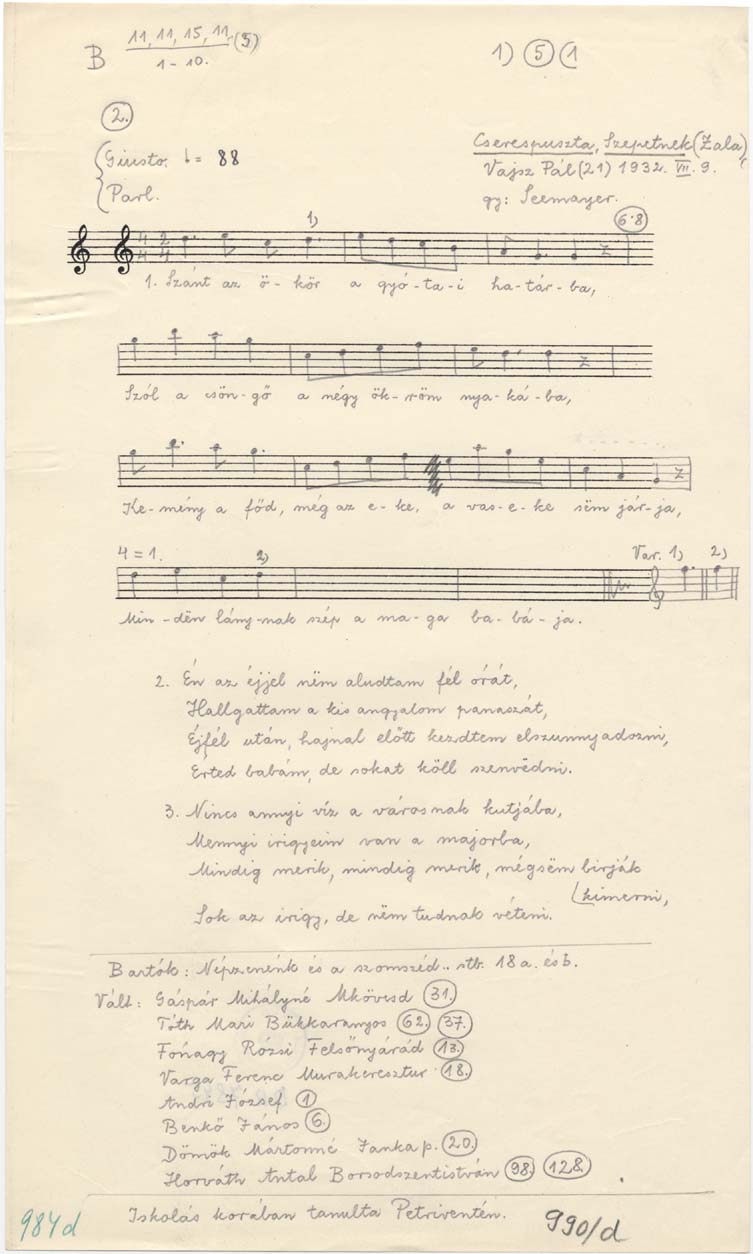 B 11, 11, 15, 11. (5)
1 - 10.
1) (5) (1
2.
Giusto. = 88
Parl.
Cserespuszta, Szepetnek (Zala)
Vajsz Pál (21) 1932. VII. 9.
gy: Seemayer.
1) 6-8
1. Szánt az ö-kör a gyó-ta-i ha-tár-ba,
Szól a csön-gő a négy ök-röm nya-ká-ba,
Ke-mény a főd, még az e-ke, a vas-e-ke sëm jár-ja,
4 = 1. 2) Var. 1) 2)
Min-dën lány-nak szép a ma-ga ba-bá-ja.
2. Én az éjjel nëm aludtam fél órát,
Hallgattam a kis angyalom panaszát,
Éjfél után, hajnal előtt kezdtem elszunnyadozni,
Érted babám, de sokat köll szenvedni.
3. Nincs annyi víz a városnak kutjába,
Mennyi irigyeim van a majorba,
Mindig merik, mindig merik, mégsëm birják
kimerni,
Sok az irigy, de nëm tudnak véteni.
Bartók: Népzenénk és a szomszéd.. stb. 18 a. és b.
Vált: Gáspár Mihályné Mkövesd 31.
Tóth Mari Bükkaranyos 62. 37.
Fónagy Rózsi Felsőnyárád 13.
Varga Ferenc Murakeresztur 18.
Andri József 1
Benkő János 6.
Dömök Mártonné Jankap. 20.
Horváth Antal Borsodszentistván 98. 128.
Iskolás korában tanulta Petriventén.
984d
990/d